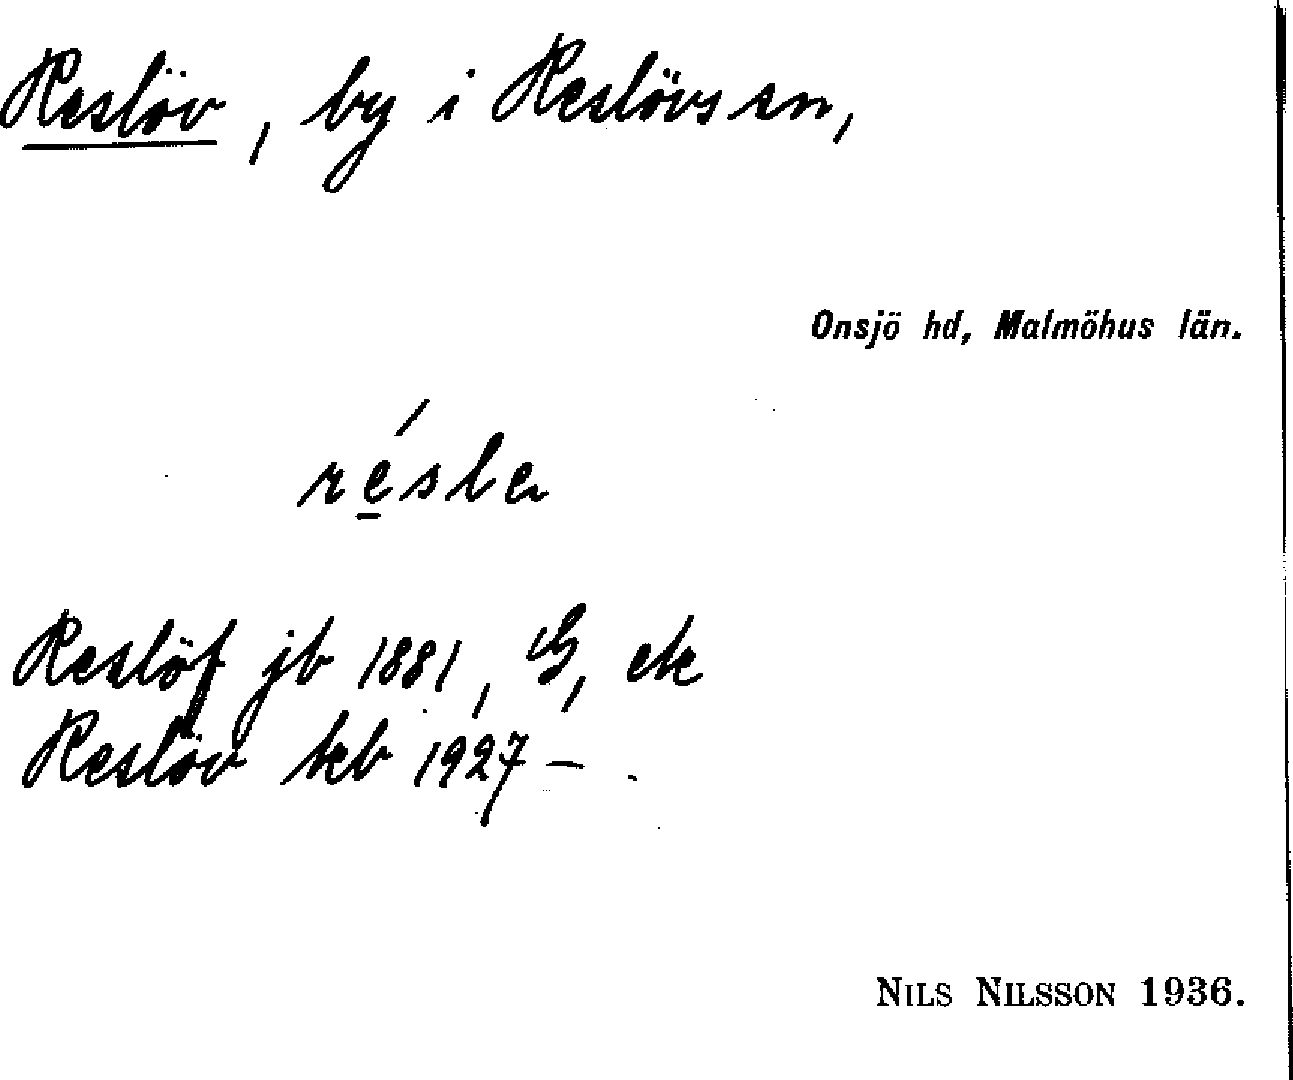 Reslöv, by i Reslövs sn,
Onsjö hd, Malmöhus län.
Reslöf jb 1881, G, ek
Reslöv kb 1927 – .
NILS NILSSON 1936.